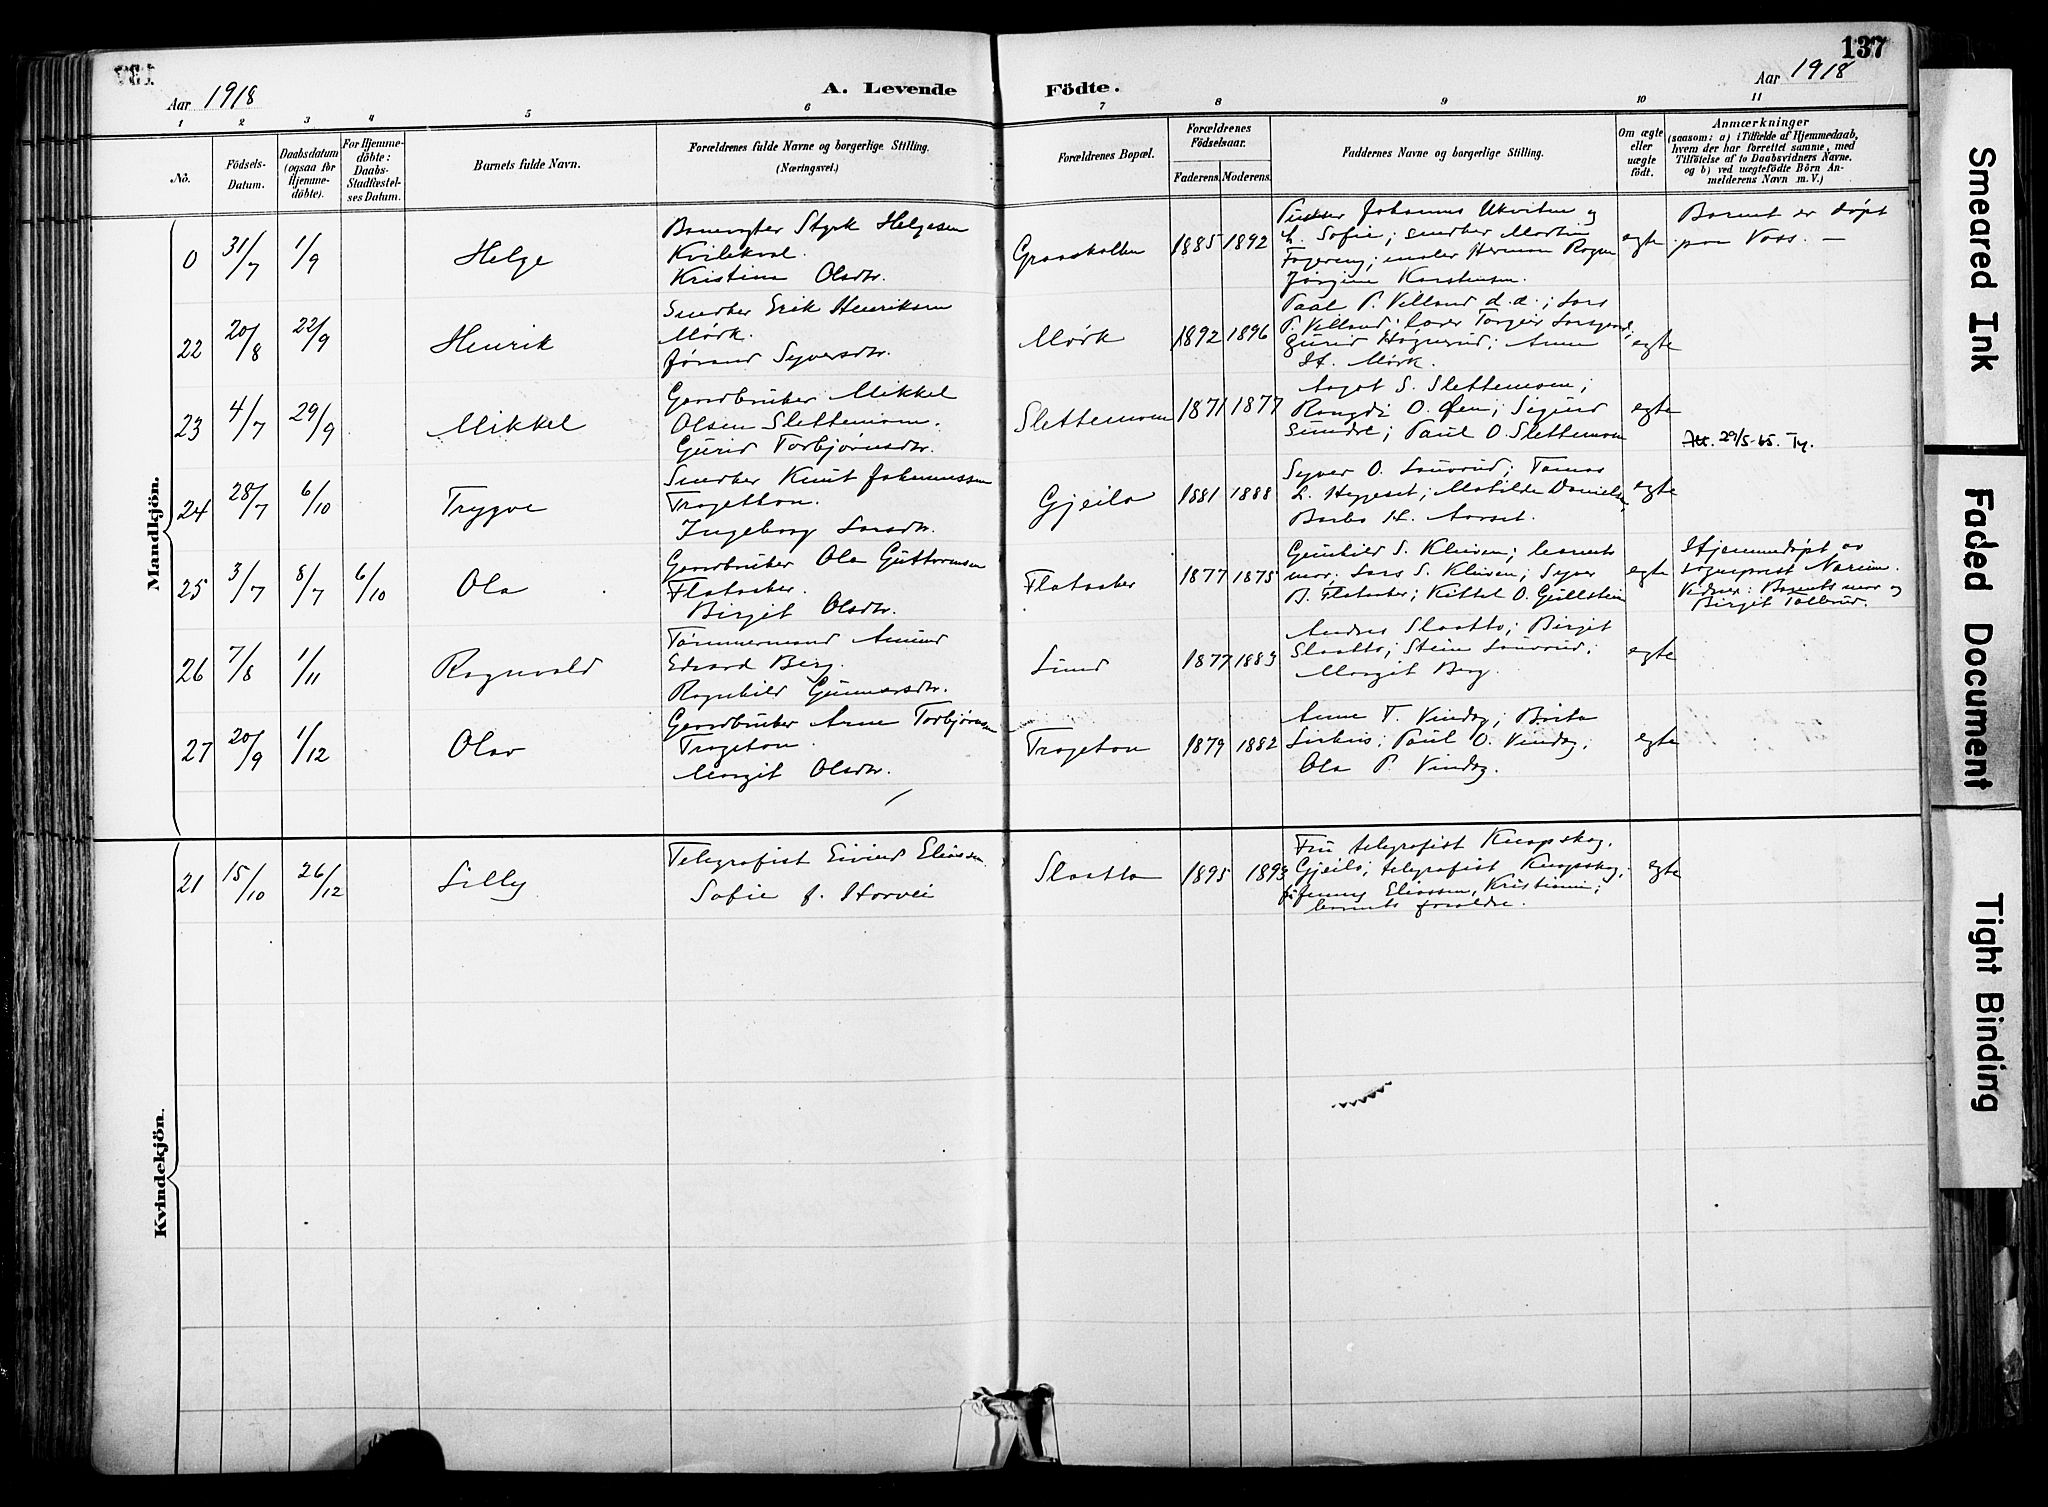 137
Aar 1918
A. Levende Födte.
Aar 1918
1 2 3 4 5 6 7 8 9 10 11
No.
Födsels-
Datum.
Daabsdatum
(ogsaa för
Hjemme-
döbte).
For Hjemme-
döbte:
Daabs-
Stadfæstel-
ses Datum.
Barnets fulde Navn.
Forældrenes fulde Navne og borgerlige Stilling.
(Næringsvei.)
Forældrenes Bopæl.
Forældrenes
Födselsaar.
Faderens. Moderens.
Faddernes Navne og borgerlige Stilling.
Om ægte
eller
uægte
födt.
Anmærkninger
(saasom: a) i Tilfælde af Hjemmedaab,
hvem der har forrettet samme, med
Tilföielse af to Daabsvidners Navne.
og b) ved uægtefödte Börn An-
melderens Navn m. V.)
Mandkjön.
0 31/7 1/9 Helge
Banevogter Styrk Helgesen
Kvilekval.
Kristine Olsdtr.
Graaskallen 1885 1892
Johannes Ukvitne og
h. Sofie; snedker Martin
Fagereng; maler Herman Rogne
Jørgine Karstensen.
egte
Barnet er døpt
paa Voss. —
22 20/8 22/9 Henrik
Snedker Erik Henriksen
Mørk.
Jørand Syversdtr.
Mørk 1892 1896
Paal P. Villand d.a.; Lars
P. Villand; Torgeir
Gurid Høgnerud; Anne
H. Mørk.
egte
23 4/7 29/9 Mikkel
Gardbruker Mikkel
Olsen Slettemoen.
Gurid Torbjørnsdtr.
Slettemoen 1871 1877
Aagot S. Slettemoen;
Rangdi O. Øen; Sigurd
Sundre; Paul O. Slettemoen
egte
Att. 29/5-65. Ty.
24 28/7 6/10 Trygve
Snedker Knut Johannessen
Trageton.
Ingeborg Larsdtr.
Gjeilo 1881 1888
Syver O. Sauerud; Tomas
L. Heggeset; Matilde Danielsen,
Barbo H. Aarset.
egte
25 3/7 8/7 6/10 Ola
Gardbruker Ola Guttormsen
Flataaker.
Birgit Olsdtr.
Flataaker 1877 1875
Gunhild S. Kleiven; barnets
mor; Lars S. Kleiven; Syver
B. Flataaker; Kittel O. Gullstein
egte
Hjemmedøpt av
sogneprest Narum.
Vidner: Barnets mor og
Birgit Tollerud.
26 7/8 1/11 Ragnvald
Tømmermand Amund
Edvard Berg.
Ragnhild Gunnarsdtr.
Lund 1877 1883
Andres Slaatto; Birgit
Slaatto; Stein Sauerud;
Margit Berg.
egte
27 20/9 1/12 Olav
Gardbruker Arne Torbjørnsen
Trageton.
Margit Olsdtr.
Trageton 1879 1882
Anne T. Vindeg; Birta
Paul O. Vindeg;
Ola P. Vindeg.
egte
Kvindekjön.
21 15/10 26/12 Lilly
Telegrafist Eivind Eliassen
Sofie f. Horvei
Slaatto 1895 1893
Fru telegrafist Knapskog,
Gjeilo; telegrafist Knapskog,
Jenny Eliassen, Kristiania;
barnets forældre.
egte
Smeared Ink
Faded Document
Tight Binding